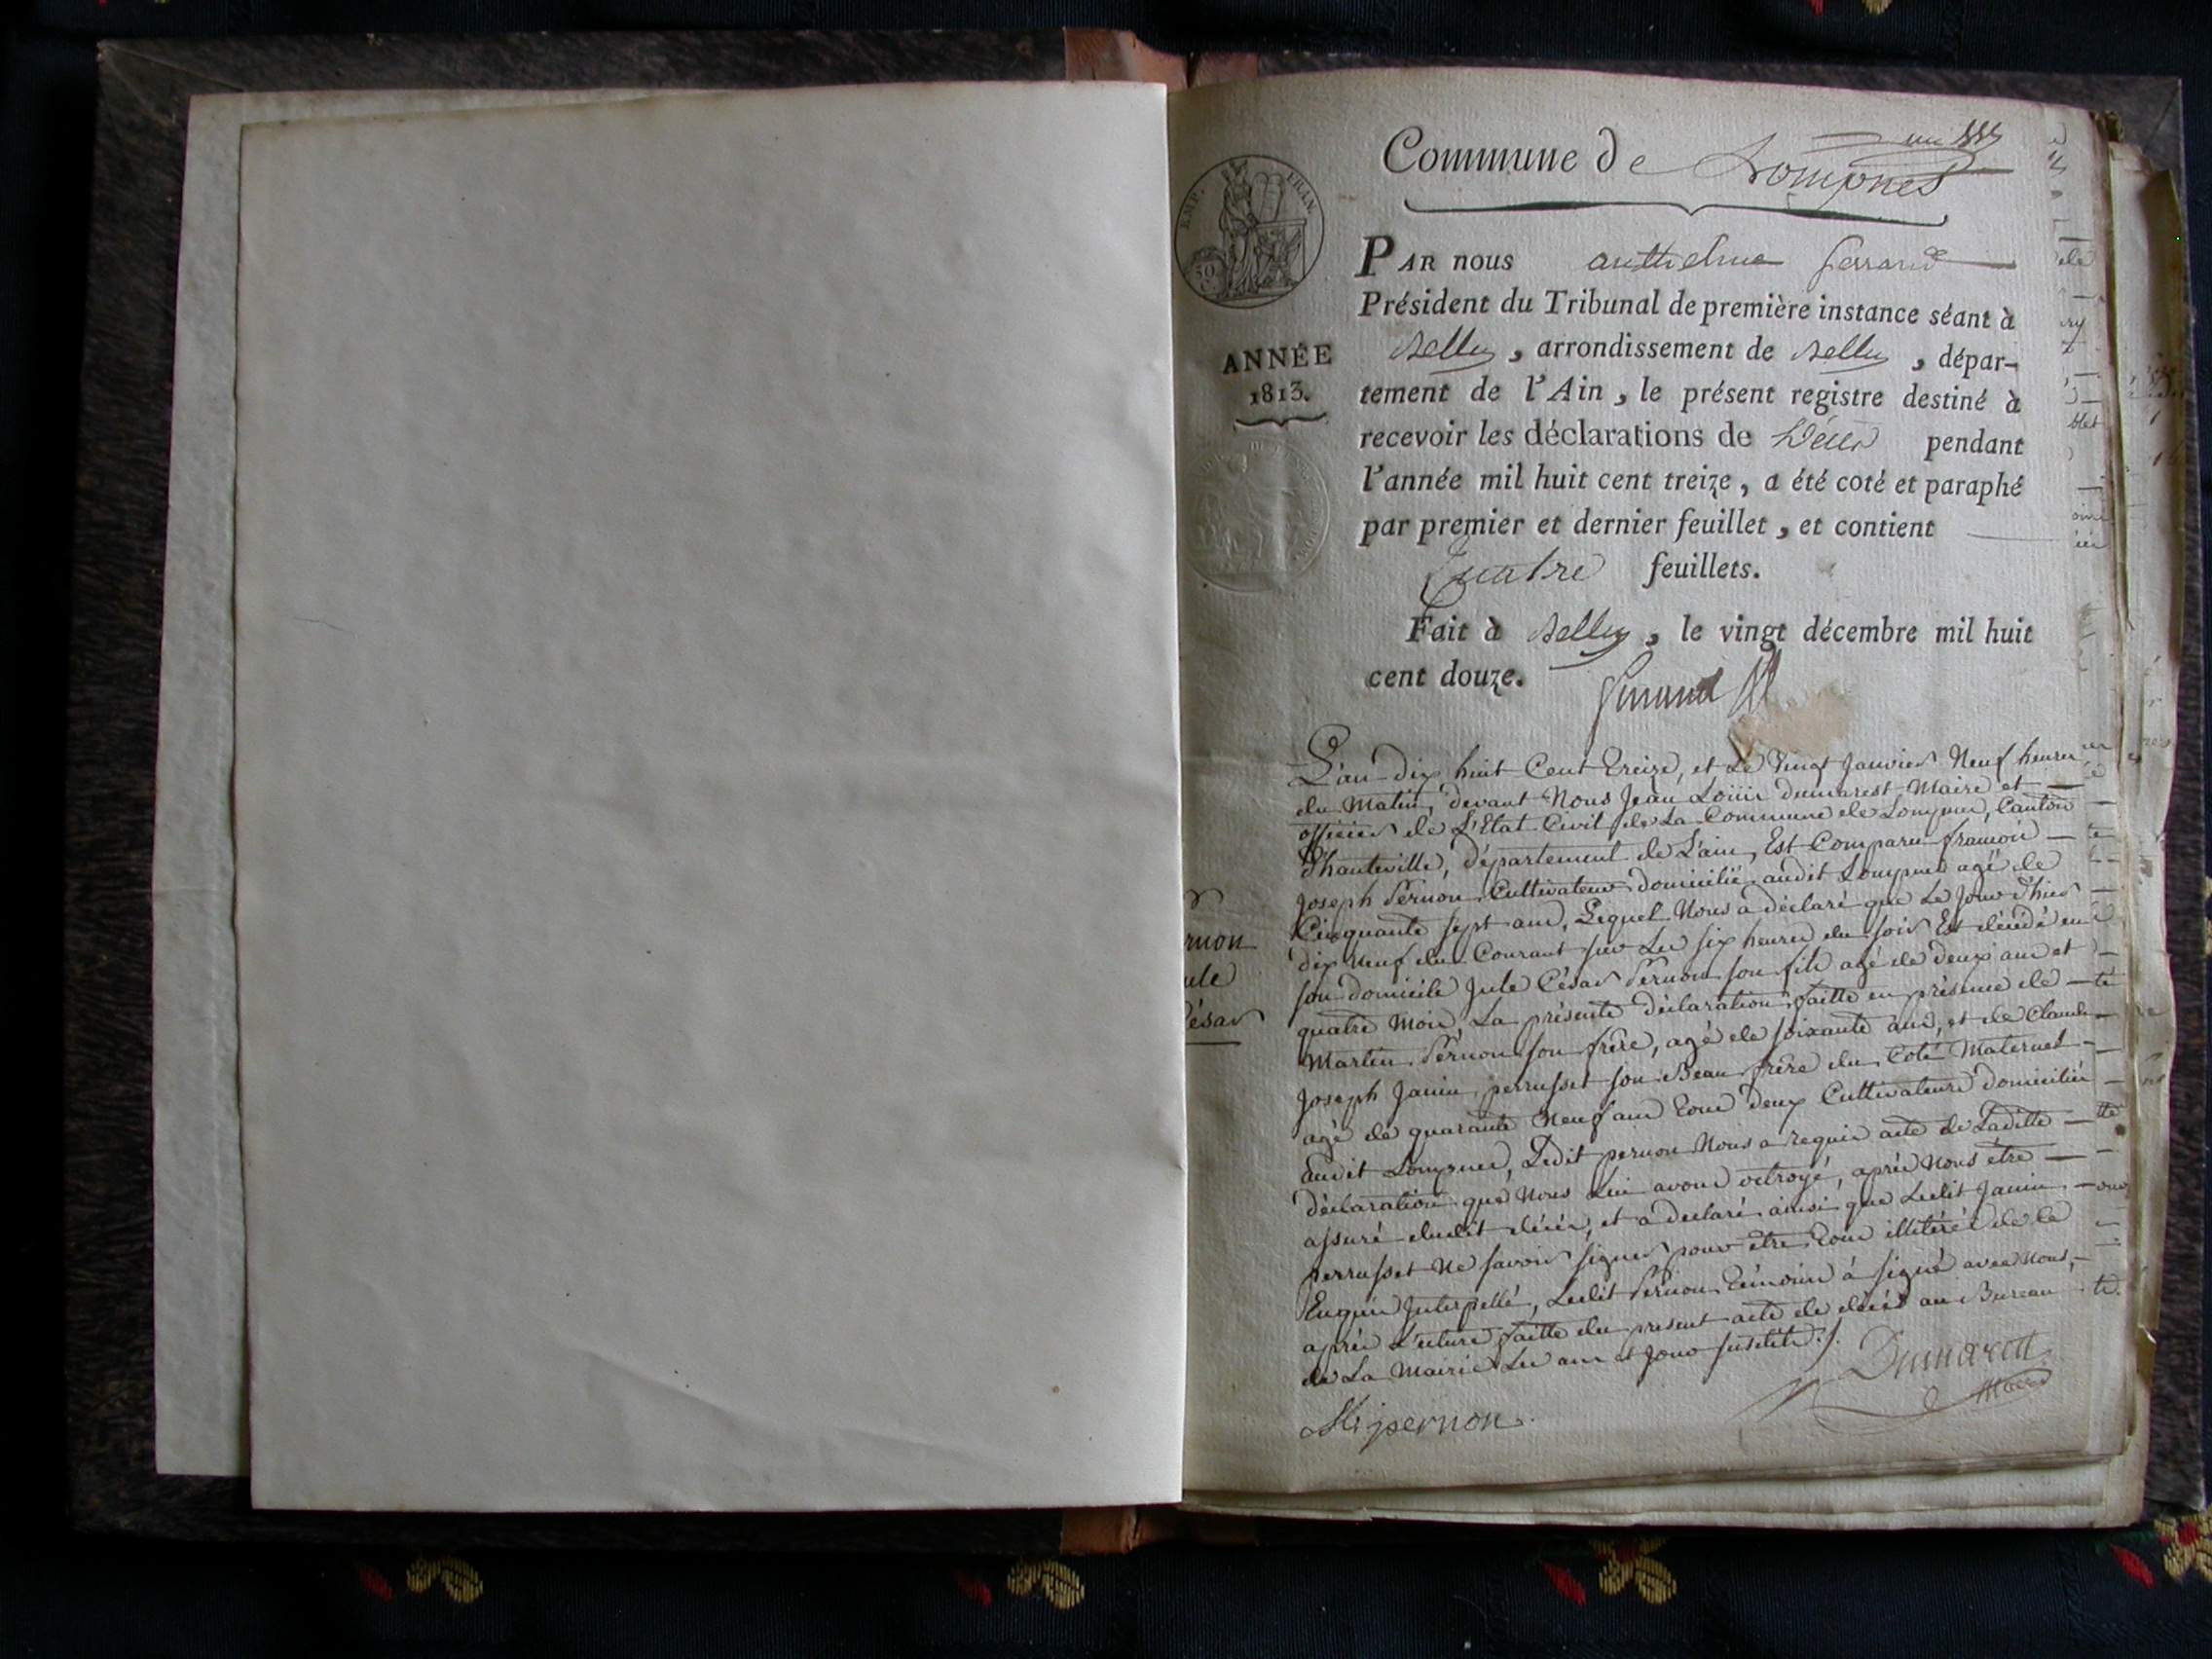 un
Commune de Lompnes
EMP. FRAN.
50
PAR nous anthelme ferrand
Président du Tribunal de première instance séant à
Belley, arrondissement de Belley, dépar-
ANNÉE
1813.
tement de l'Ain, le présent registre destiné à
recevoir les déclarations de Décès pendant
l'année mil huit cent treize, a été coté et paraphé
par premier et dernier feuillet, et contient
quatre feuillets.
Fait à Belley, le vingt décembre mil huit
cent douze.
L'an dix huit Cent treize, et le vingt Janvier Neuf heures
du Matin, devant Nous Jean Louis Dumarest Maire et
officier de L'Etat Civil de La Commune de Lompnes, Canton
d'hauteville, département de L'ain, Est Comparu francois
Joseph Pernon Cultivateur domicilié audit Lompnes agé de
Cinquante sept ans, Lequel Nous a déclaré que Le Jour d'hier
dix Neuf du Courant sur Les six heures du soir Est décédé en
son domicile Jule César Pernon son fils agé de deux ans et
quatre Mois, La présente déclaration faitte en présence de
Martin Pernon son frère, agé de soixante ans, et de Claude
Joseph Janin perrusset son Beau frère du Coté Maternel
agé de quarante Neuf ans tous deux Cultivateurs domiciliés
audit Lompnes, Ledit pernon Nous a requis acte de Laditte
déclaration que Nous Lui avons octroyé, après Nous être
assuré dudit décès, et a declaré ainsi que Ledit Janin
perrusset Ne savoir signer pour être tous illitérés de ce
Enquis Interpellé, Ledit Pernon témoin à signé avec nous,
après L'ecture faitte du present acte de décès au Bureau
de La Mairie Les an et Jour susdits ./.
rnon
ule
ésar
Dumarest
Maire
Mi pernon.